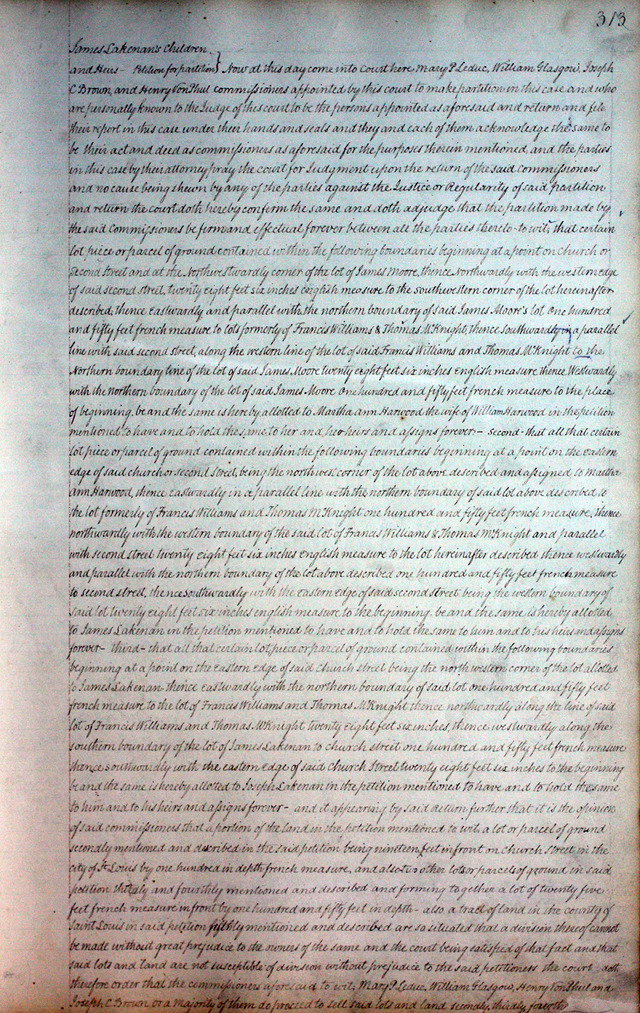 313
James Lakenan's children
and Heirs - Petition for partition } Now at this day come into Court here Mary P. Leduc, William Glasgow, Joseph
C Brown, and Henry Von Phul commissioners appointed by this court to make partition in this case and who
are personally known to the Judge of this court to be the persons appointed as aforesaid and return and file
their report in this case under their hands and seals and they and each of them acknowledge the same to
be their act and deed as commissioners as aforesaid for the purposes therein mentioned, and the parties
in this case by their attorney pray the court for Judgment upon the return of the said commissioners
and no cause being shewn by any of the parties against the Justice or Regularity of said partition
and return the court doth hereby confirm the same and doth adjudge that the partition made by
the said commissioners be firm and effectual forever between all the parties thereto - to wit, that certain
lot piece or parcel of ground contained within the following boundaries beginning at a point on church or
second street and at the Northwestwardly corner of the lot of James Moore, thence Northwardly with the western edge
of said second street, twenty eight feet six inches english measure to the southwestern corner of the lot hereinafter
described, thence eastwardly and parallel with the northern boundary of said James Moore's lot one hundred
and fifty feet french measure to lots formerly of Francis Williams & Thomas McKnight, thence Southwardly in a parallel
line with said second street, along the western line of the lot of said Francis Williams and Thomas McKnight to the
Northern boundary line of the lot of said James Moore twenty eight feet six inches English measure thence Westwardly
with the Northern boundary of the lot of said James Moore one hundred and fifty feet french measure to the place
of beginning, be and the same is hereby allotted to Martha Ann Harwood the wife of William Harwood in the petition
mentioned to have and to hold the same to her and her heirs and assigns forever - second - that all that certain
lot piece or parcel of ground contained within the following boundaries beginning at a point on the eastern
edge of said church or second street, being the northwest corner of the lot above described and assigned to Martha
ann Harwood, thence eastwardly in a parallel line with the northern boundary of said lot above described to
the lot formerly of Francis Williams and Thomas McKnight one hundred and fifty feet french measure, thence
northwardly with the western boundary of the said lot of Francis Williams & Thomas McKnight and parallel
with second street twenty eight feet six inches English measure to the lot hereinafter described thence westwardly
and parallel with the northern boundary of the lot above described one hundred and fifty feet french measure
to second street, thence southwardly with the eastern edge of said second street being the western boundary of
said lot twenty eight feet six inches english measure to the beginning, be and the same is hereby allotted
to James Lakenan in the petition mentioned to have and to hold the same to him and to his heirs and assigns
forever - third - that all that certain lot piece or parcel of ground contained within the following boundaries
beginning at a point on the eastern edge of said church street being the north western corner of the lot allotted
to James Lakenan thence eastwardly with the northern boundary of said lot one hundred and fifty feet
french measure to the lot of Francis Williams and Thomas McKnight thence northwardly along the line of said
lot of Francis Williams and Thomas McKnight twenty eight feet six inches, thence westwardly along the
southern boundary of the lot of James Lakenan to church street one hundred and fifty feet french measure
thence southwardly with the eastern edge of said Church Street twenty eight feet six inches to the beginning
be and the same is hereby allotted to Joseph Lakenan in the petition mentioned to have and to hold the same
to him and to his heirs and assigns forever - and it appearing by said return further that it is the opinion
of said commissioners that a portion of the land in the petition mentioned to wit a lot or parcel of ground
secondly mentioned and described in the said petition being nineteen feet in front on church street in the
city of St Louis by one hundred in depth french measure, and also two other lots or parcels of ground in said
petition thirdly and fourthly mentioned and described and forming together a lot of twenty five
feet french measure in front by one hundred and fifty feet in depth - also a tract of land in the county of
Saint Louis in said petition fifthly mentioned and described are so situated that a division thereof cannot
be made without great prejudice to the owners of the same and the court being satisfied of that fact and that
said lots and land are not susceptible of division without prejudice to the said petitioners the court doth
therefore order that the commissioners aforesaid to wit, Mary P. Leduc, William Glasgow, Henry Von Phul and
Joseph C Brown or a majority of them do proceed to sell said lots and land secondly, thirdly fourthly